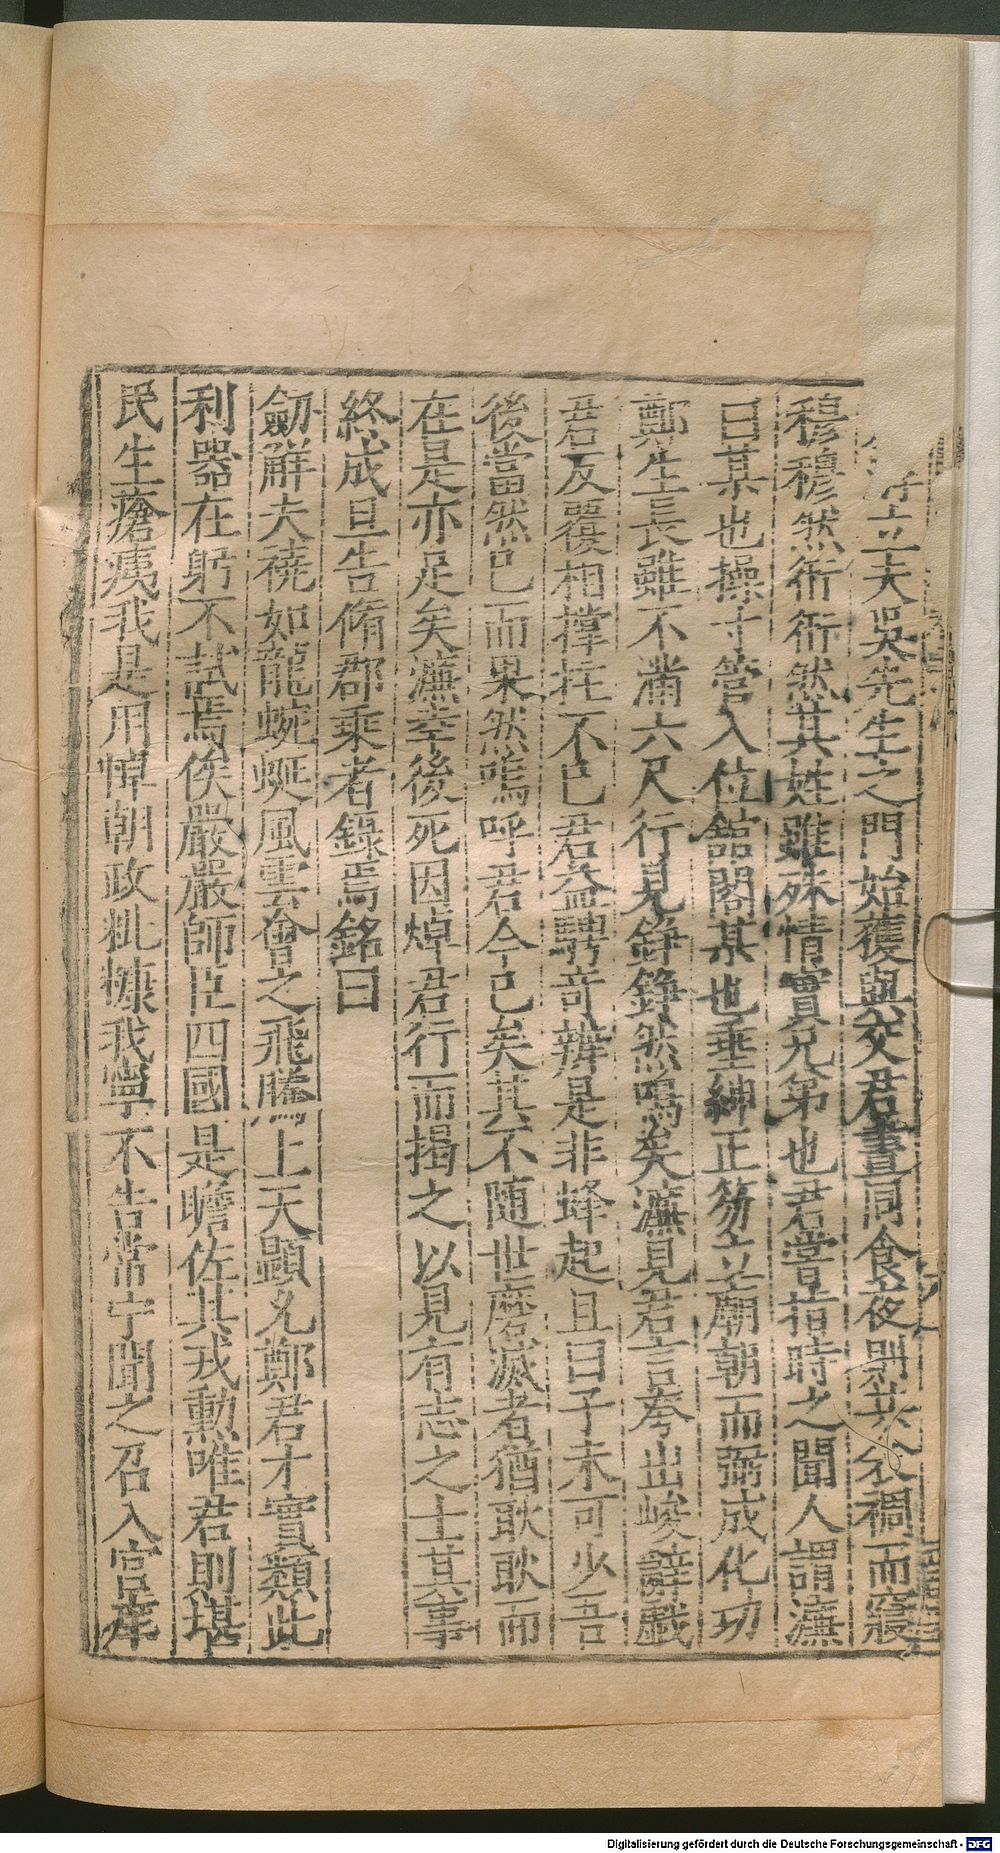 立夫吳先生之門始獲與交君晝同食夜則共衾裯而寢
穆穆然衎衎然其姓雖殊情實兄弟也君嘗指時之聞人謂濂
曰某也操寸管入位舘閣某也垂紳正笏立廟朝而弼成化功
鄭生長雖不滿六尺行見錚錚然鳴矣濂見君言夸出峻辭戲
君反覆相撑拄不已君益騁竒辨是非蜂起且曰子未可少吾
後當然已而果然嗚呼君今已矣其不随世磨滅者猶耿耿而
在是亦足矣濂幸後死因焯君行而揭之以見有志之士其事
終成且告脩郡乘者錄焉銘曰
劒觧夫襓如龍蜿蜒風雲會之飛騰上天顯允鄭君才實類此
利器在躬不試焉俟嚴嚴師臣四國是瞻佐其戎勲唯君則堪
民生瘡痍我是用悼朝政粃糠我寧不告常宁聞之召入宫庠
Digitalisierung gefördert durch die Deutsche Forschungsgemeinschaft - DFG